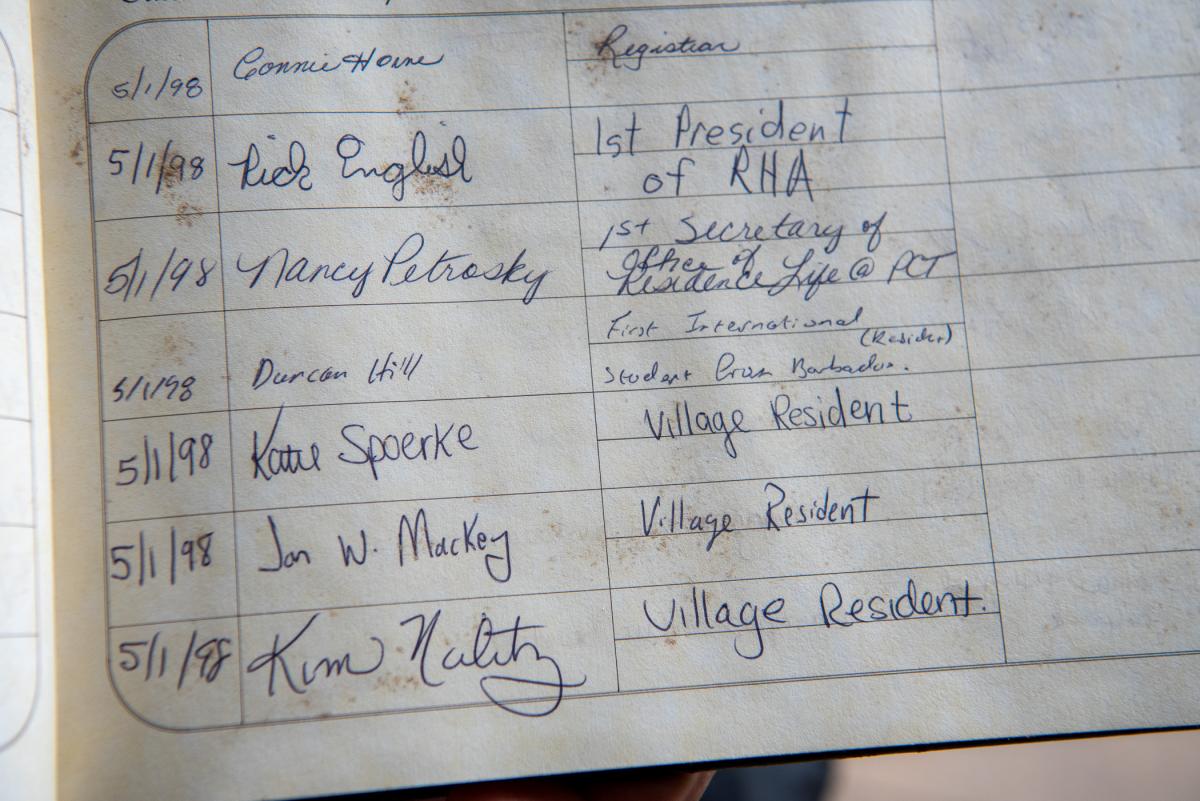 5/1/98 Connie Horne Registrar
5/1/98 Rick English 1st President
of RHA
5/1/98 Nancy Petrosky 1st Secretary of
Office of
Residence Life @ PCT
5/1/98 Duncan Hill First International
(Resident)
Student from Barbados.
5/1/98 Katie Spoerke Village Resident
5/1/98 Jon W. Mackey Village Resident
5/1/98 Kim Village Resident.